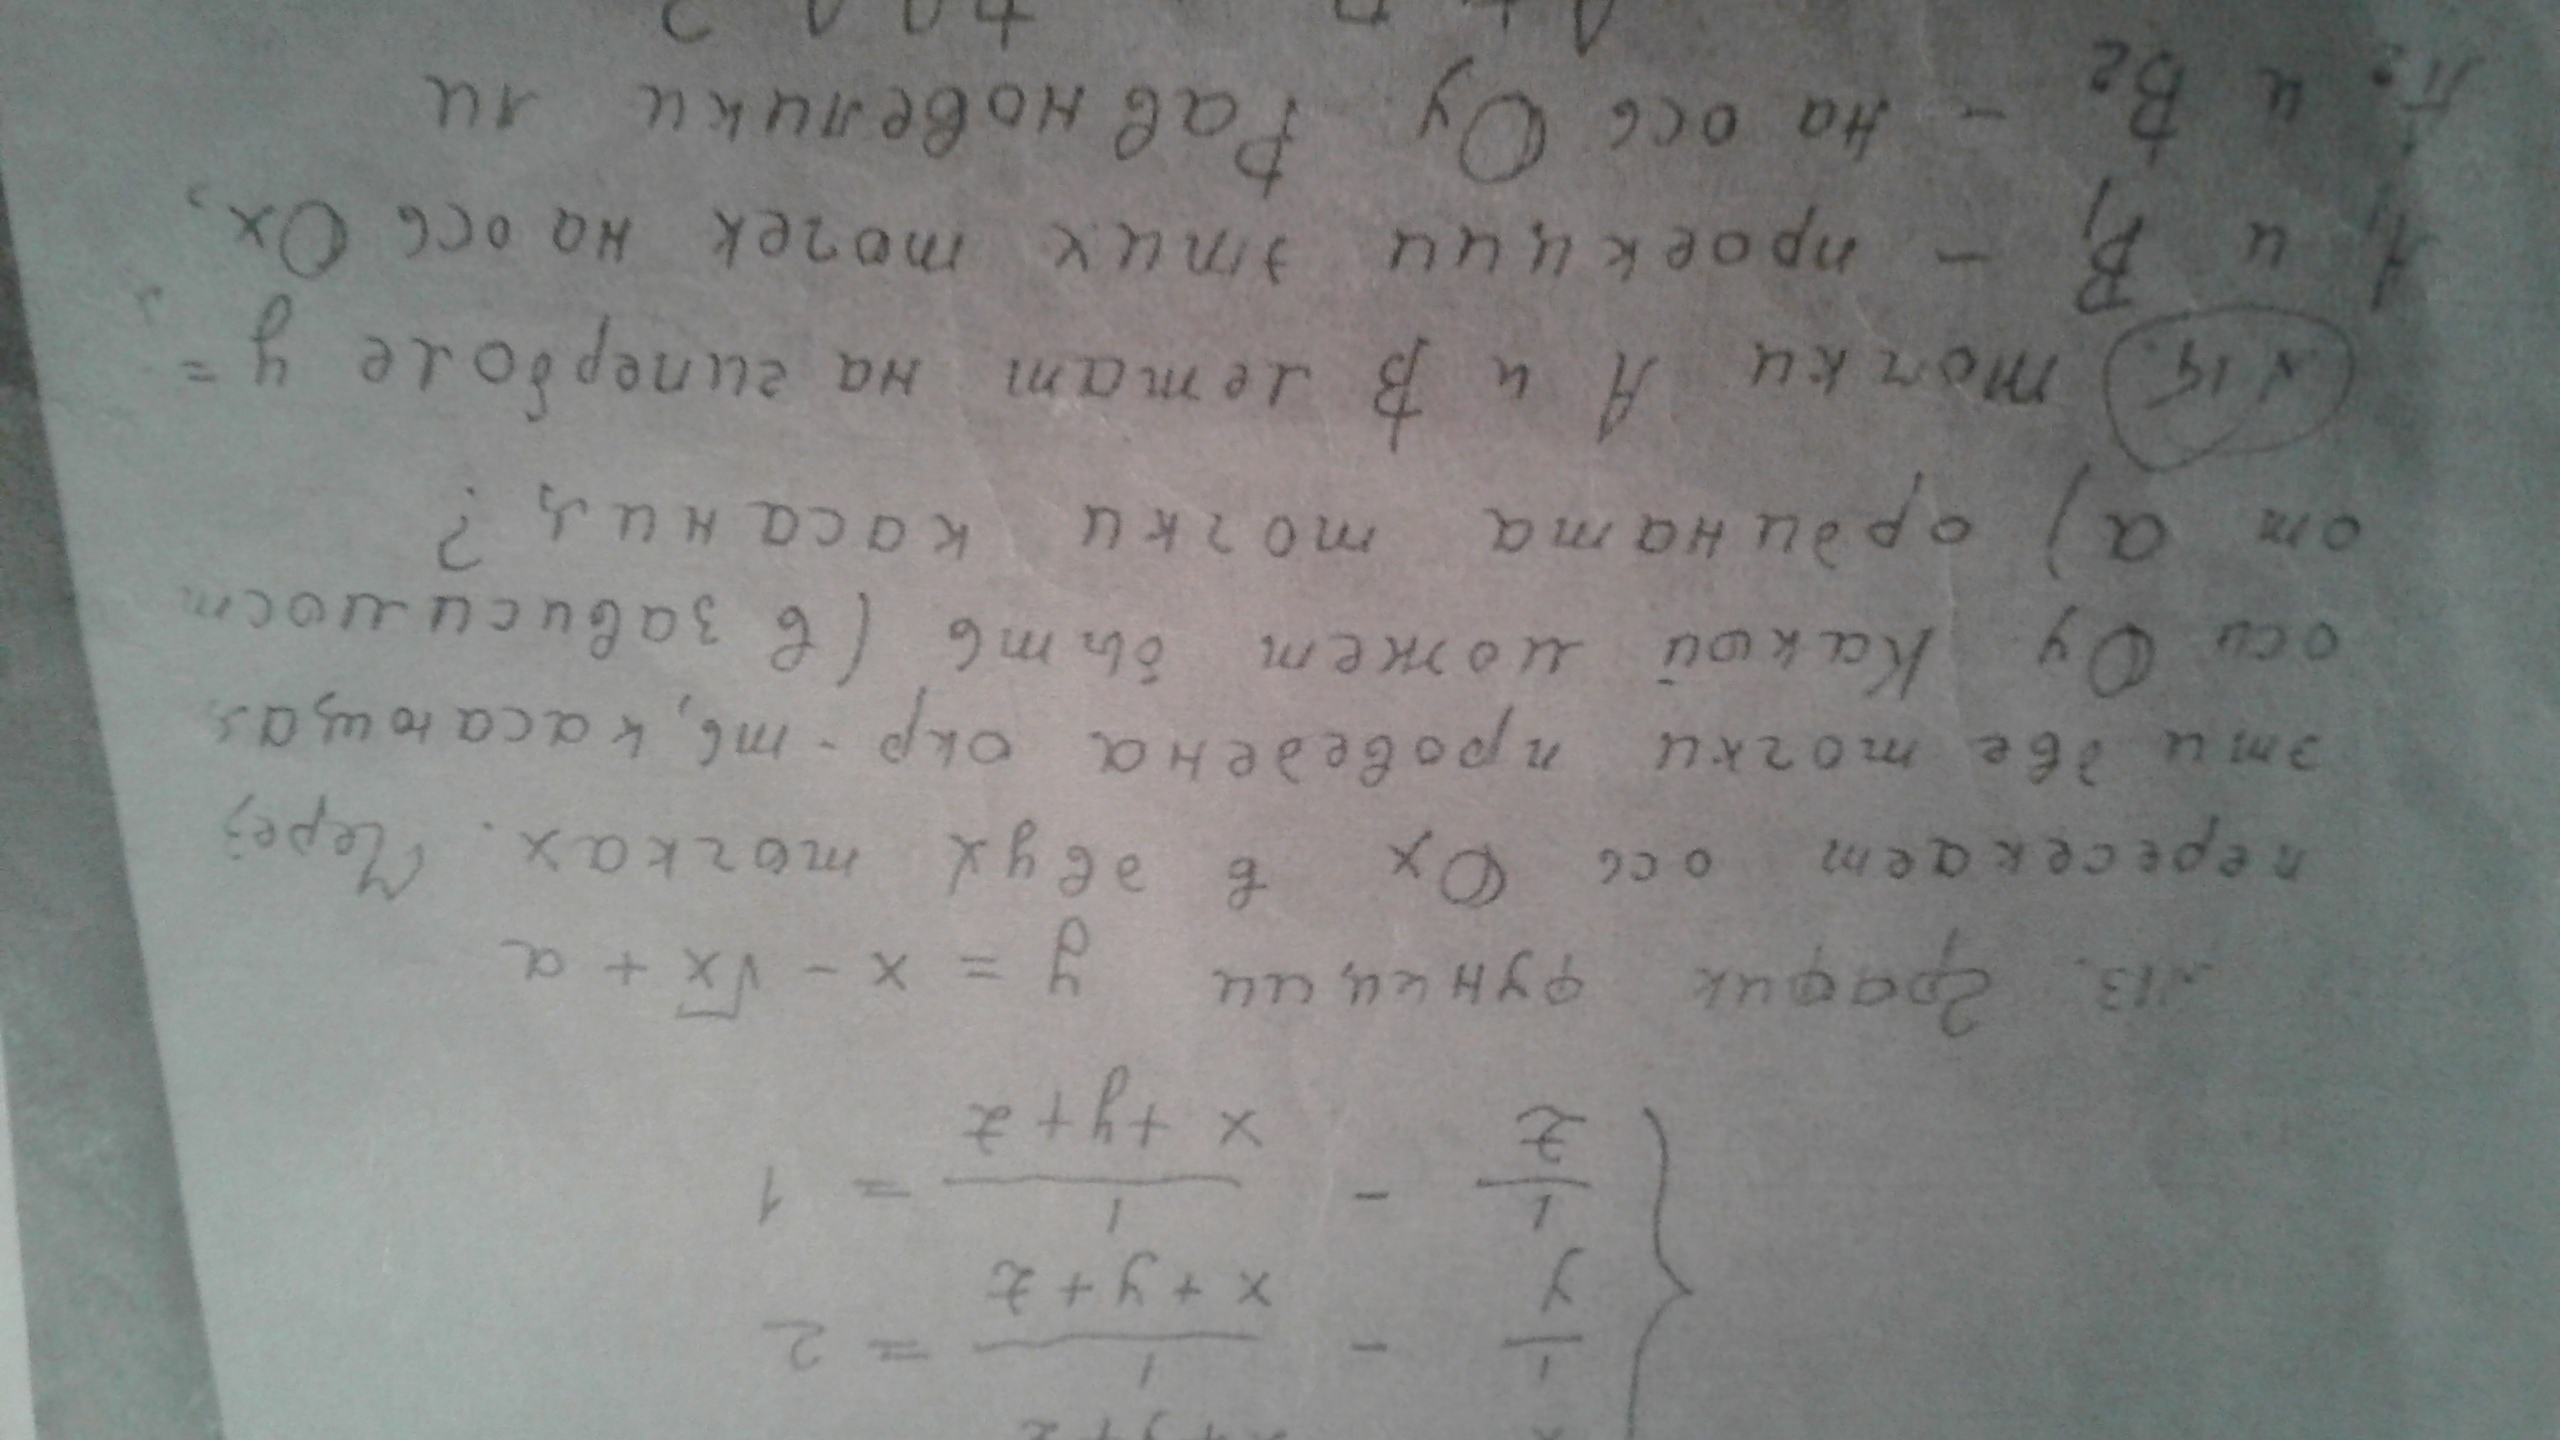 x x+y+z
1/y - 1/(x+y+z) = 2
1/z - 1/(x+y+z) = 1
№13. График функции y = x - √x + a
пересекает ось Ox в двух точках. Через
эти две точки проведена окр-ть, касающая
оси Oy Какой может быть (в зависимост
от a) ордината точки касания?
точки A и B лежат на гиперболе y =
A₁ и B₁ - проекции этих точек на ось Ox,
A₂ и B₂ - на ось Oy Равновелики ли